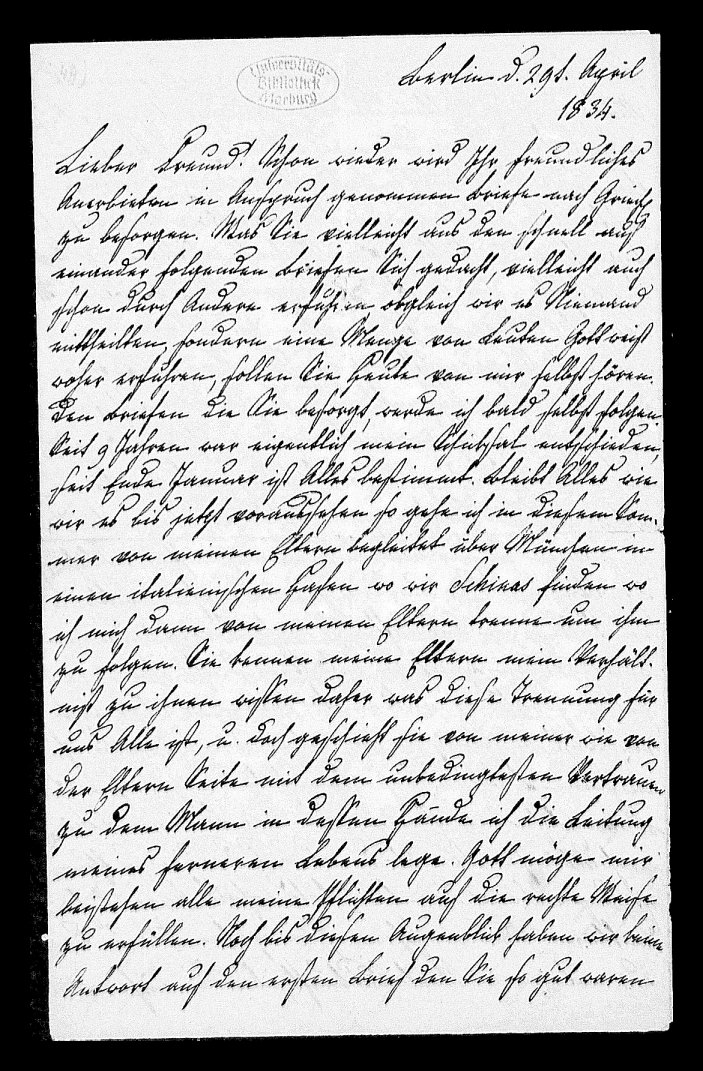 Universitäts-
Bibliothek
Marburg
Berlin d. 29t. April
1834.
Lieber Freund! Schon wieder wird Ihr freundliches
Anerbieten in Anspruch genommen Briefe nach Griech
zu besorgen. Was Sie vielleicht aus den schnell auf
einander folgenden Briefen Sich gedacht, vielleicht auch
schon durch Andere erfuhren obgleich wir es Niemand
mittheilten, sondern eine Menge von Leuten Gott weiß
woher erfuhren, sollen Sie Heute von mir selbst hören.
Den Briefen die Sie besorgt, werde ich bald selbst folgen.
Seit 9 Jahren war eigentlich mein Schicksal entschieden,
seit Ende Januar ist Alles bestimmt. Bleibt Alles wie
wir es bis jetzt voraussehen so gehe ich in diesem Som-
mer von meinen Eltern begleitet über München in
einen italienischen Hafen wo wir Schinas finden wo
ich mich dann von meinen Eltern trenne um ihm
zu folgen. Sie kennen meine Eltern mein Verhält-
niß zu ihnen wissen daher was diese Trennung für
uns Alle ist, u. doch geschieht sie von meiner wie von
der Eltern Seite mit dem unbedingtesten Vertrauen
zu dem Mann in dessen Hände ich die Leitung
meines ferneren Lebens lege. Gott möge mir
beistehen alle meine Pflichten auf die rechte Weise
zu erfüllen. Noch bis diesen Augenblick haben wir keine
Antwort auf den ersten Brief den Sie so gut waren